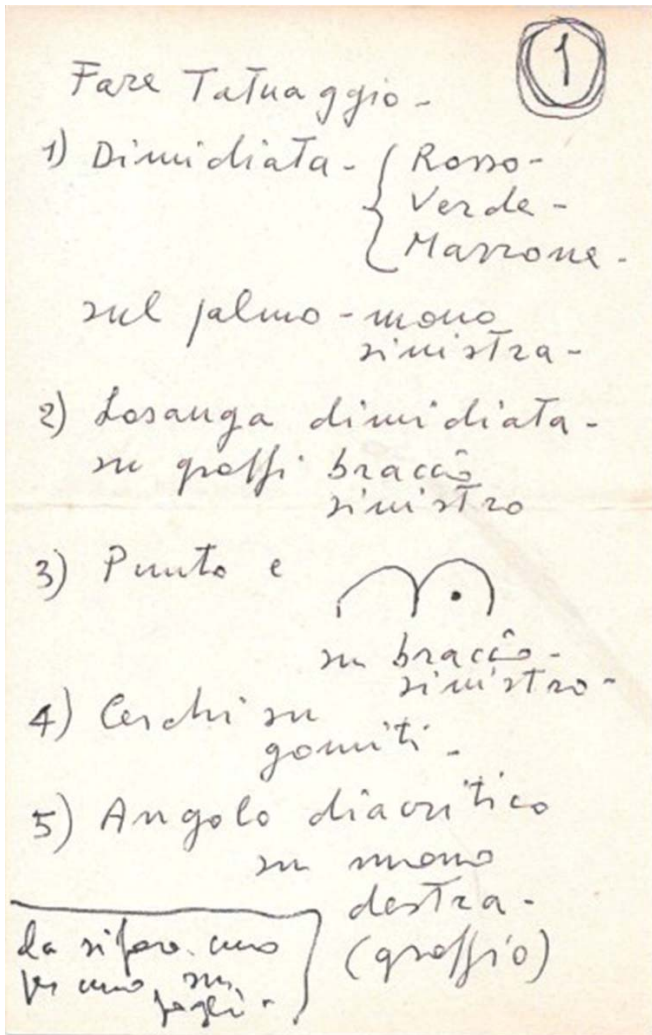 1
Fare Tatuaggio -
1) Dimidiata - { Rosso -
Verde -
Marrone -
sul palmo - mano
sinistra -
2) Losanga dimidiata -
su graffi braccio
sinistro
3) Punto e
su braccio -
sinistro -
4) Cerchi su
gomiti -
5) Angolo diacritico
su mano
destra -
(graffio)
da rifare uno
per uno su
fogli -